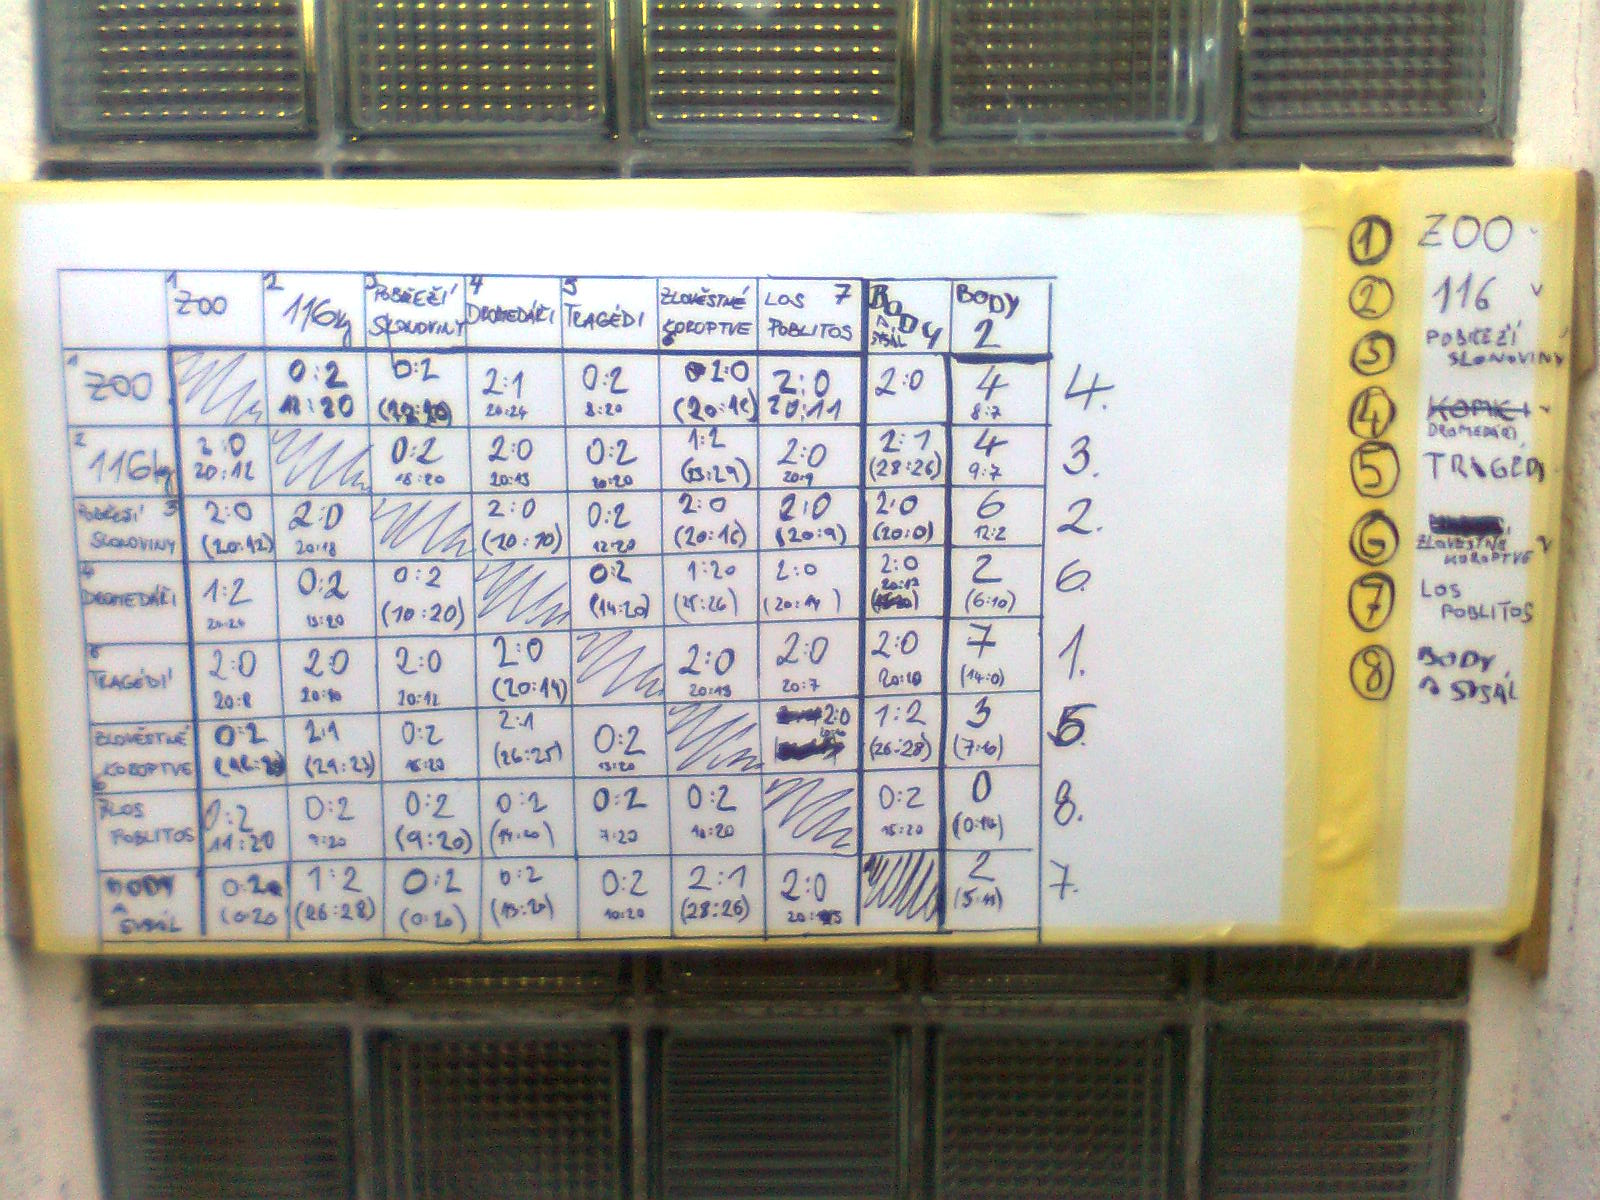 1 ZOO
2 116kg
3 POBŘEŽÍ SLONOVINY
4 DROMEDÁŘI
5 TRAGÉDI
ZLOVĚSTNÉ KOROPTVE 6
LOS POBLITOS 7
BODY A SVSÁL
BODY 2
1 ZOO
0:2
0:2
2:1
0:2
2:0
2:0
2:0
4
4.
20:24
8:20
20:11
8:7
2 116kg
2:0
0:2
2:0
0:2
1:2
2:0
2:1
4
3.
20:12
18:20
20:13
20:9
(28:26)
9:7
POBŘEŽÍ 3 SLONOVINY
2:0
2:0
2:0
0:2
2:0
2:0
2:0
6
2.
(20:12)
20:18
(20:10)
12:20
(20:16)
(20:9)
(20:0)
12:2
4 DROMEDÁŘI
1:2
0:2
0:2
0:2
1:2
2:0
2:0
2
6.
13:20
(10:20)
(14:20)
(25:26)
(20:14)
20:13
(6:10)
5 TRAGÉDI
2:0
2:0
2:0
2:0
2:0
2:0
2:0
7
1.
20:8
20:12
(20:14)
20:13
20:7
20:10
(14:0)
ZLOVĚSTNÉ KOROPTVE 6
0:2
2:1
0:2
2:1
0:2
2:0
1:2
3
5.
(29:23)
16:20
(26:25)
13:20
(26:28)
7 LOS POBLITOS
0:2
0:2
0:2
0:2
0:2
0:2
0:2
0
8.
11:20
9:20
(9:20)
7:20
15:20
(0:14)
BODY A SVSÁL
0:2
1:2
0:2
0:2
0:2
2:1
2:0
2
7.
(0:20)
(26:28)
(0:20)
(13:20)
10:20
(28:26)
20:15
(5:13)
1 ZOO
2 116
3 POBŘEŽÍ
SLONOVINY
4
DROMEDÁŘI
5 TRAGÉDI
6 ZLOVĚSTNÉ
KOROPTVE
7 LOS
POBLITOS
8 BODY
A SVSÁL